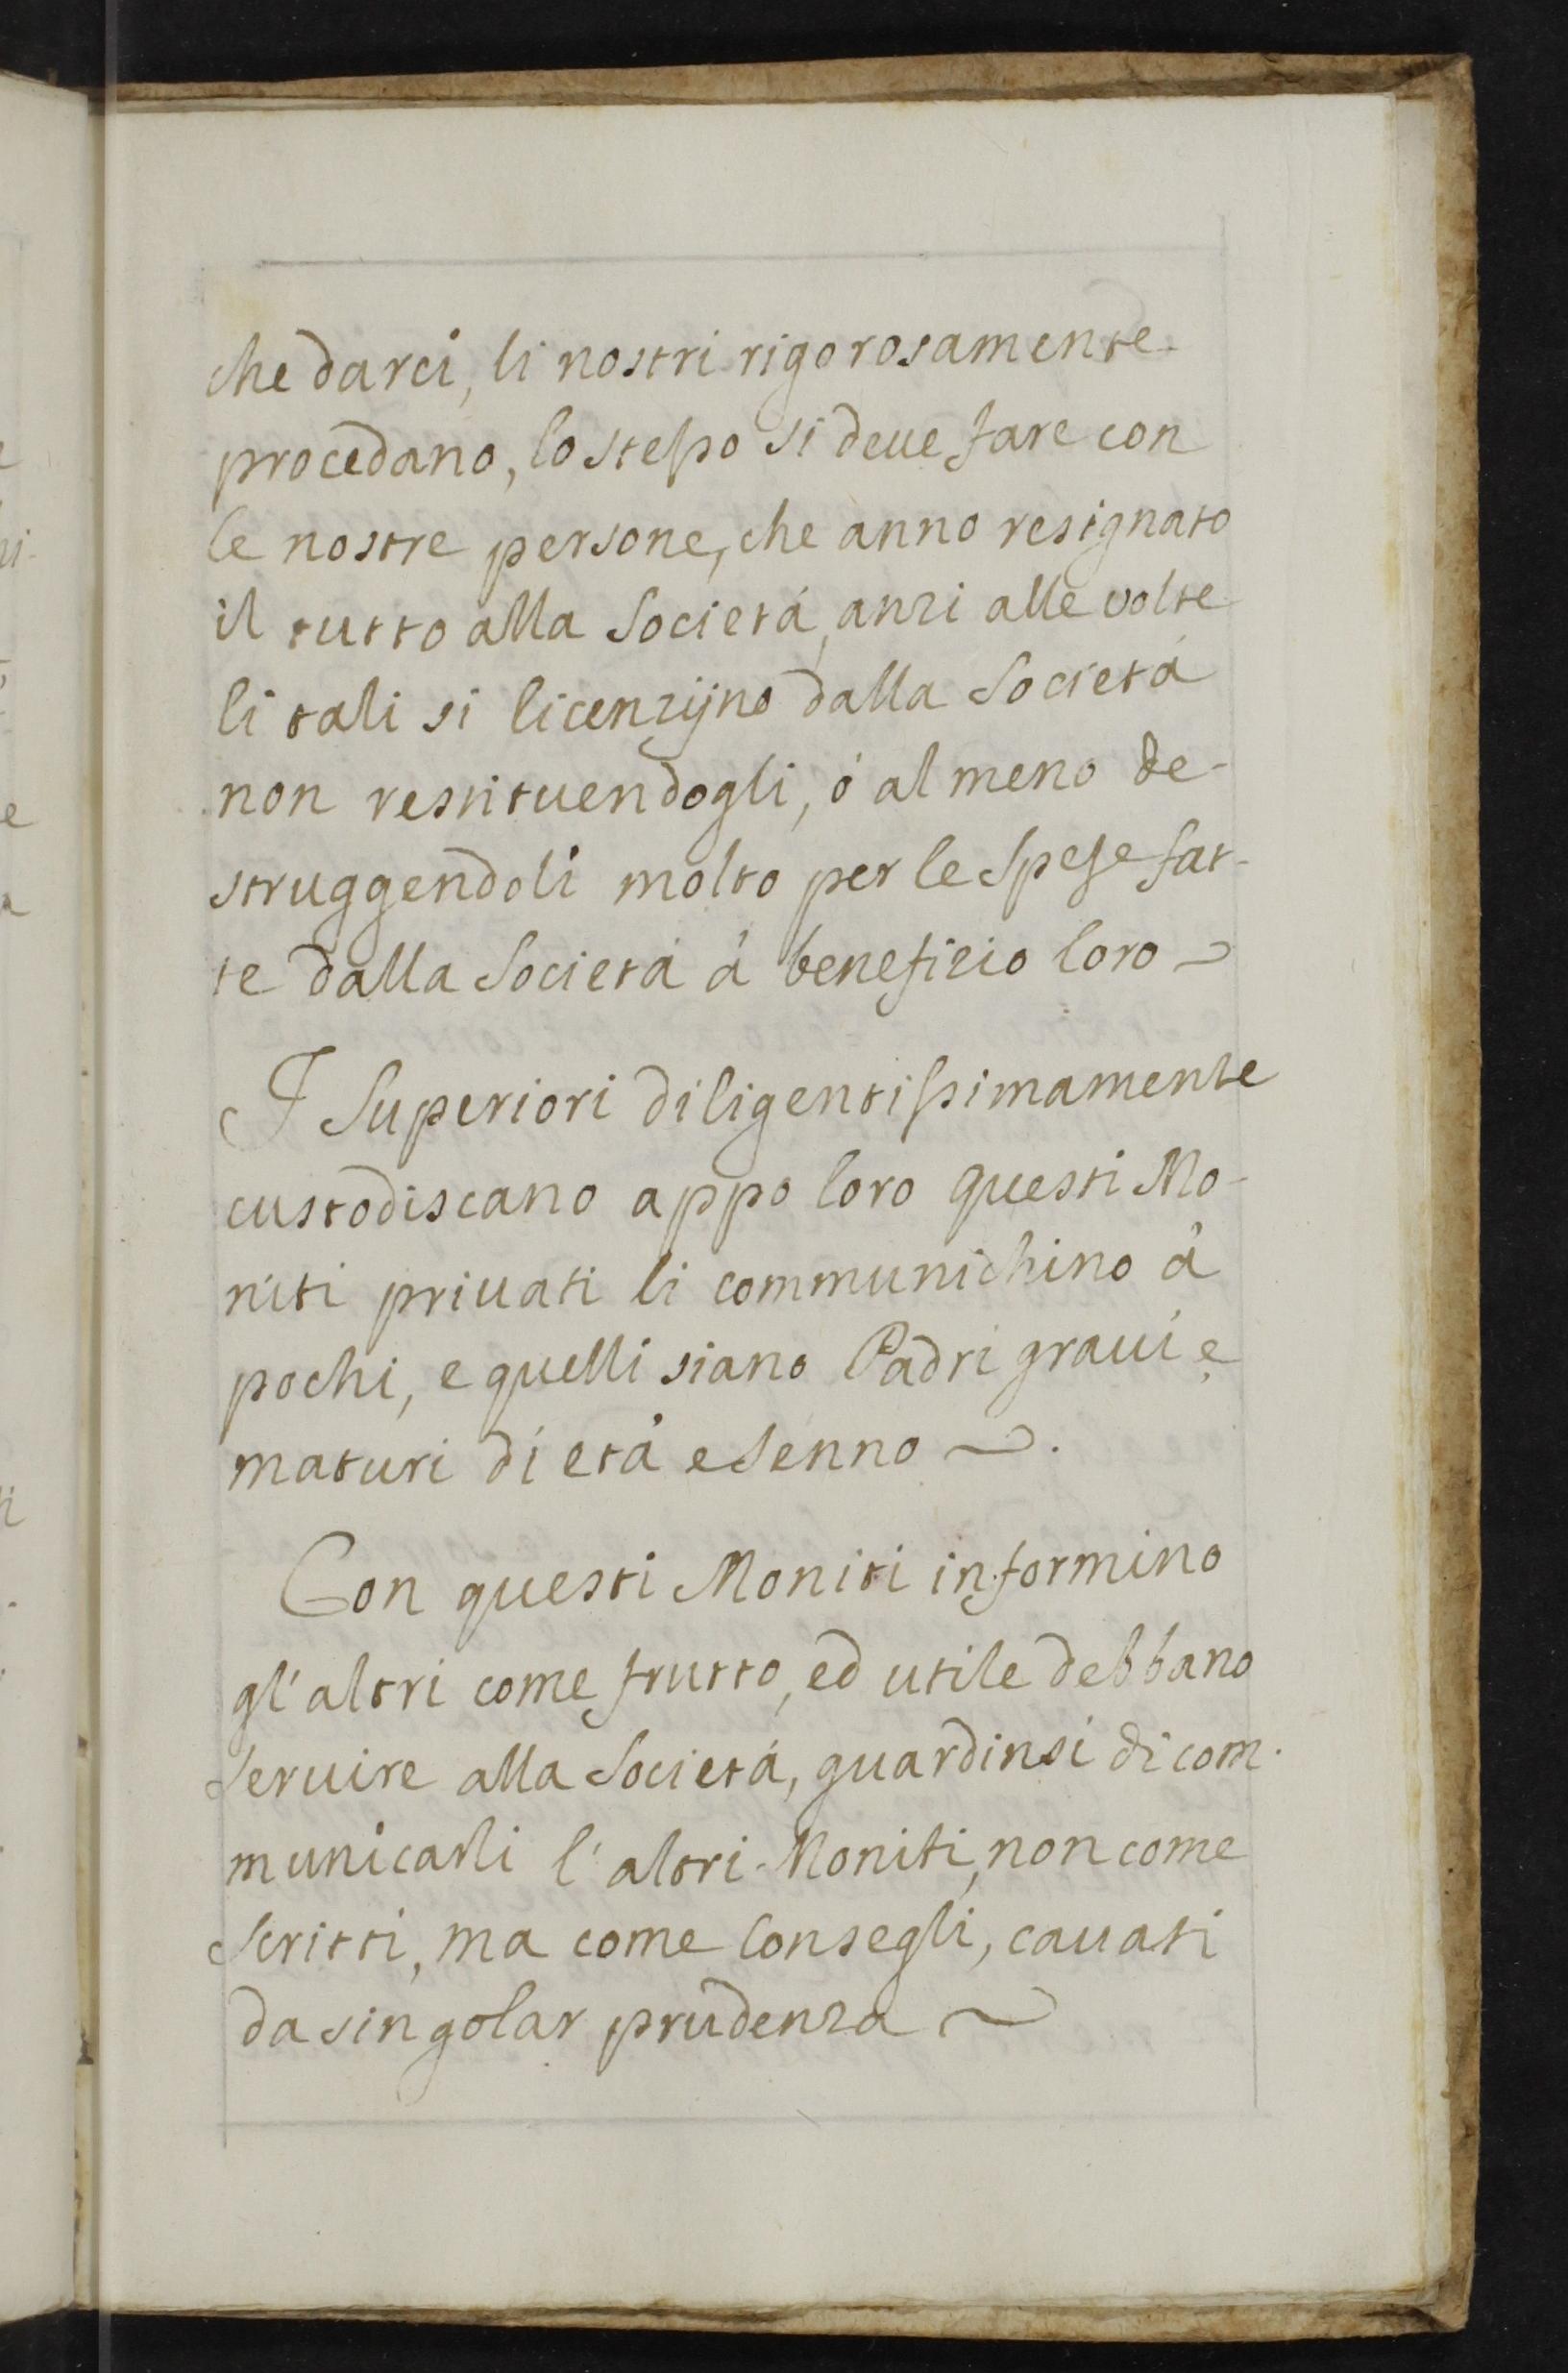 che darci, li nostri rigorosamente
procedano, lo stesso si deue fare con
le nostre persone, che anno resignato
il tutto alla Societá, anzi alle volte
li tali si licenzijno dalla Societá
non restituendogli, ó al meno de-
struggendoli molto per le spese fat-
te dalla Societá á benefizio loro ~
I Superiori diligentissimamente
custodiscano appo loro questi Mo-
niti priuati li communichino á
pochi, e quelli siano Padri graui e
maturi di etá e senno ~.
Con questi Moniti informino
gl'altri come frutto, ed utile debbano
seruire alla Societá, guardinsi di com-
municarli l'altri Moniti, non come
scritti, ma come Consegli, cauati
da singolar prudenza ~